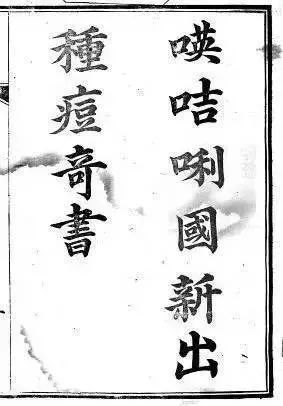 㖽咭唎國新出
種痘奇書